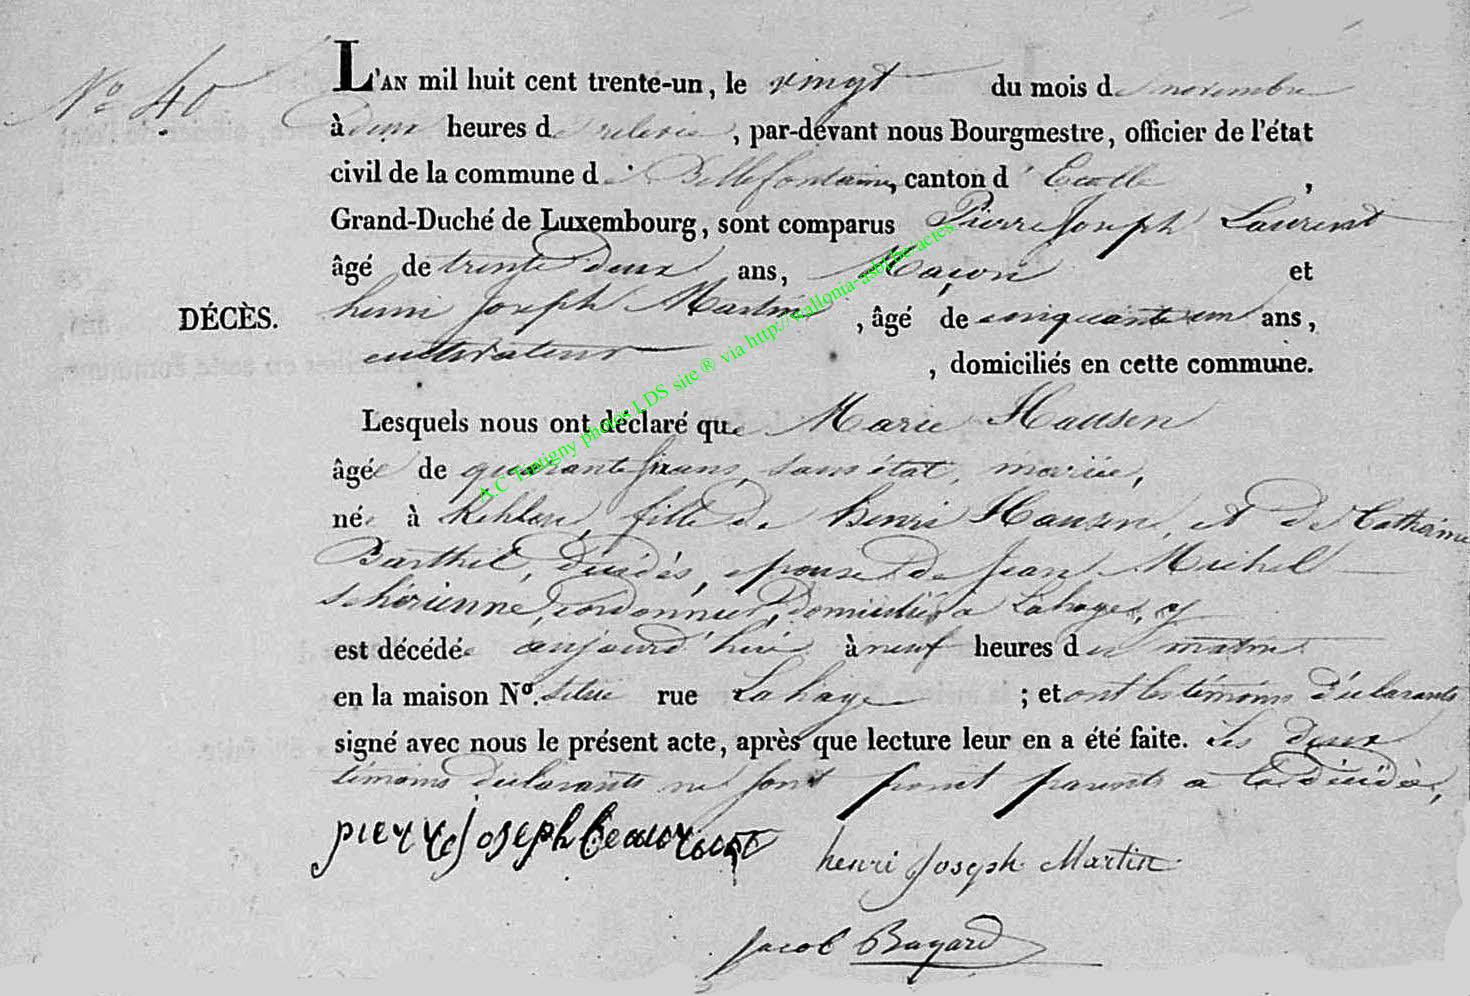 N° 40
L'AN mil huit cent trente-un, le vingt du mois de novembre
à deux heures de relevée, par-devant nous Bourgmestre, officier de l'état
civil de la commune de Bellefontaine, canton d'Etalle,
Grand-Duché de Luxembourg, sont comparus Pierre Joseph Laurent
âgé de trente deux ans, Maçon et
henri Joseph Martin, âgé de cinquante un ans,
cultivateur, domiciliés en cette commune.
DÉCÈS.
Lesquels nous ont déclaré que Marie Hausen
âgée de quarante ans, sans état, mariée,
née à fille de henri Hausen, et de Catherine
Barthel, décédés, epouse de Jean Michel
cordonnier, domicilié a Lahage, y
est décédée aujourd'hui à neuf heures du matin
en la maison N°. située rue Lahage ; et ont les témoins déclarants
signé avec nous le présent acte, après que lecture leur en a été faite. Les deux
témoins déclarants ne sont point parents a la décédée,
pierre Joseph
henri Joseph Martin
Jacob Bayard
A.C Tintigny photos LDS site ® via http://wallonia-asbl.be/actes